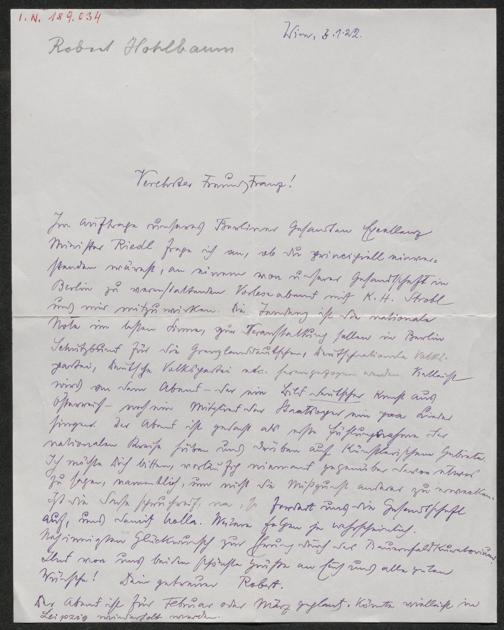 I.N. 189.034
Robert Hohlbaum
Wien, 3.1.22.
Verehrter Freund Franz!
Im Auftrage unseres Berliner Gesandten Exzellenz
Minister Riedl frage ich an, ob du prinzipiell einver-
standen wärest, an einem von unserer Gesandtschaft in
Berlin zu veranstaltenden Vorleseabend mit K. H. Strobl
und mir mitzuwirken. Die Tendenz ist die nationale
Note im besten Sinne, zur Veranstaltung sollen in Berlin
Schutzbund für die Grenzlanddeutschen, Deutschnationale Volks-
partei, Deutsche Volkspartei etc. herangezogen werden. Vielleicht
wird an dem Abend – der ein Bild deutscher Kunst aus
Österreich – noch ein Mitglied der Staatsoper ein paar Lieder
singen. Der Abend ist gedacht als erste Fühlungnahme der
nationalen Kreise hüben und drüben auf künstlerischem Gebiete.
Ich möchte Dich bitten, vorläufig niemand gegenüber davon etwas
zu sagen, namentlich, um nicht die Missgunst anderer zu erwecken.
Ist die Sache spruchreif, fordert uns die Gesandtschaft
auf, und damit holla. Meine Zusage ist wahrscheinlich.
Nachinnigsten Glückwunsch zur Ehrung durch das Bauernfeldkuratorium
von uns beiden schönste Grüße an Euch und alle guten
Wünsche! Dein getreuer Robert.
Der Abend ist für Februar oder März geplant. Könnte vielleicht in
Leipzig wiederholt werden.